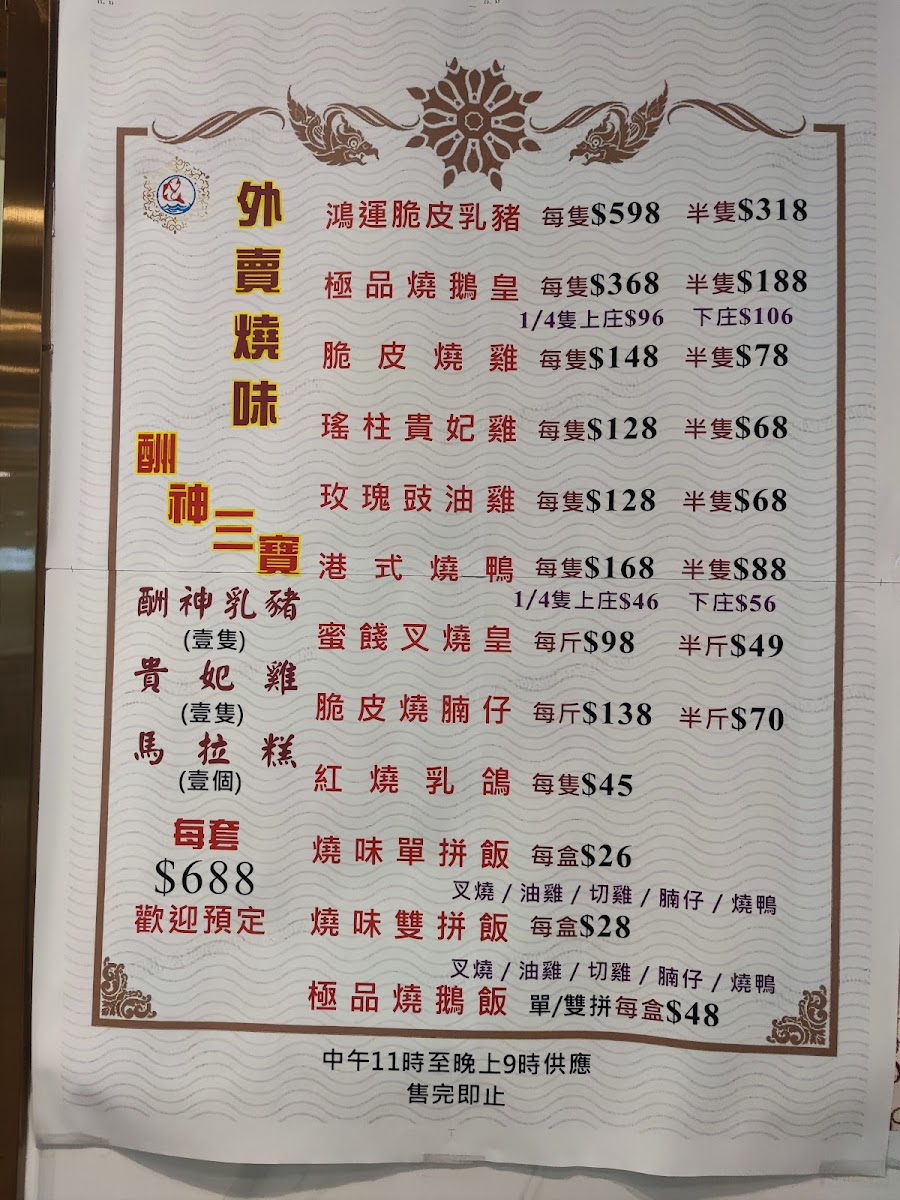 外賣燒味
鴻運脆皮乳豬 每隻$598 半隻$318
極品燒鵝皇 每隻$368 半隻$188
1/4隻上庄$96 下庄$106
脆皮燒雞 每隻$148 半隻$78
瑤柱貴妃雞 每隻$128 半隻$68
玫瑰豉油雞 每隻$128 半隻$68
港式燒鴨 每隻$168 半隻$88
1/4隻上庄$46 下庄$56
蜜餞叉燒皇 每斤$98 半斤$49
脆皮燒腩仔 每斤$138 半斤$70
紅燒乳鴿 每隻$45
燒味單拼飯 每盒$26
叉燒/油雞/切雞/腩仔/燒鴨
燒味雙拼飯 每盒$28
叉燒/油雞/切雞/腩仔/燒鴨
極品燒鵝飯 單/雙拼每盒$48
酬神三寶
酬神乳豬
(壹隻)
貴妃雞
(壹隻)
馬拉糕
(壹個)
每套
$688
歡迎預定
中午11時至晚上9時供應
售完即止